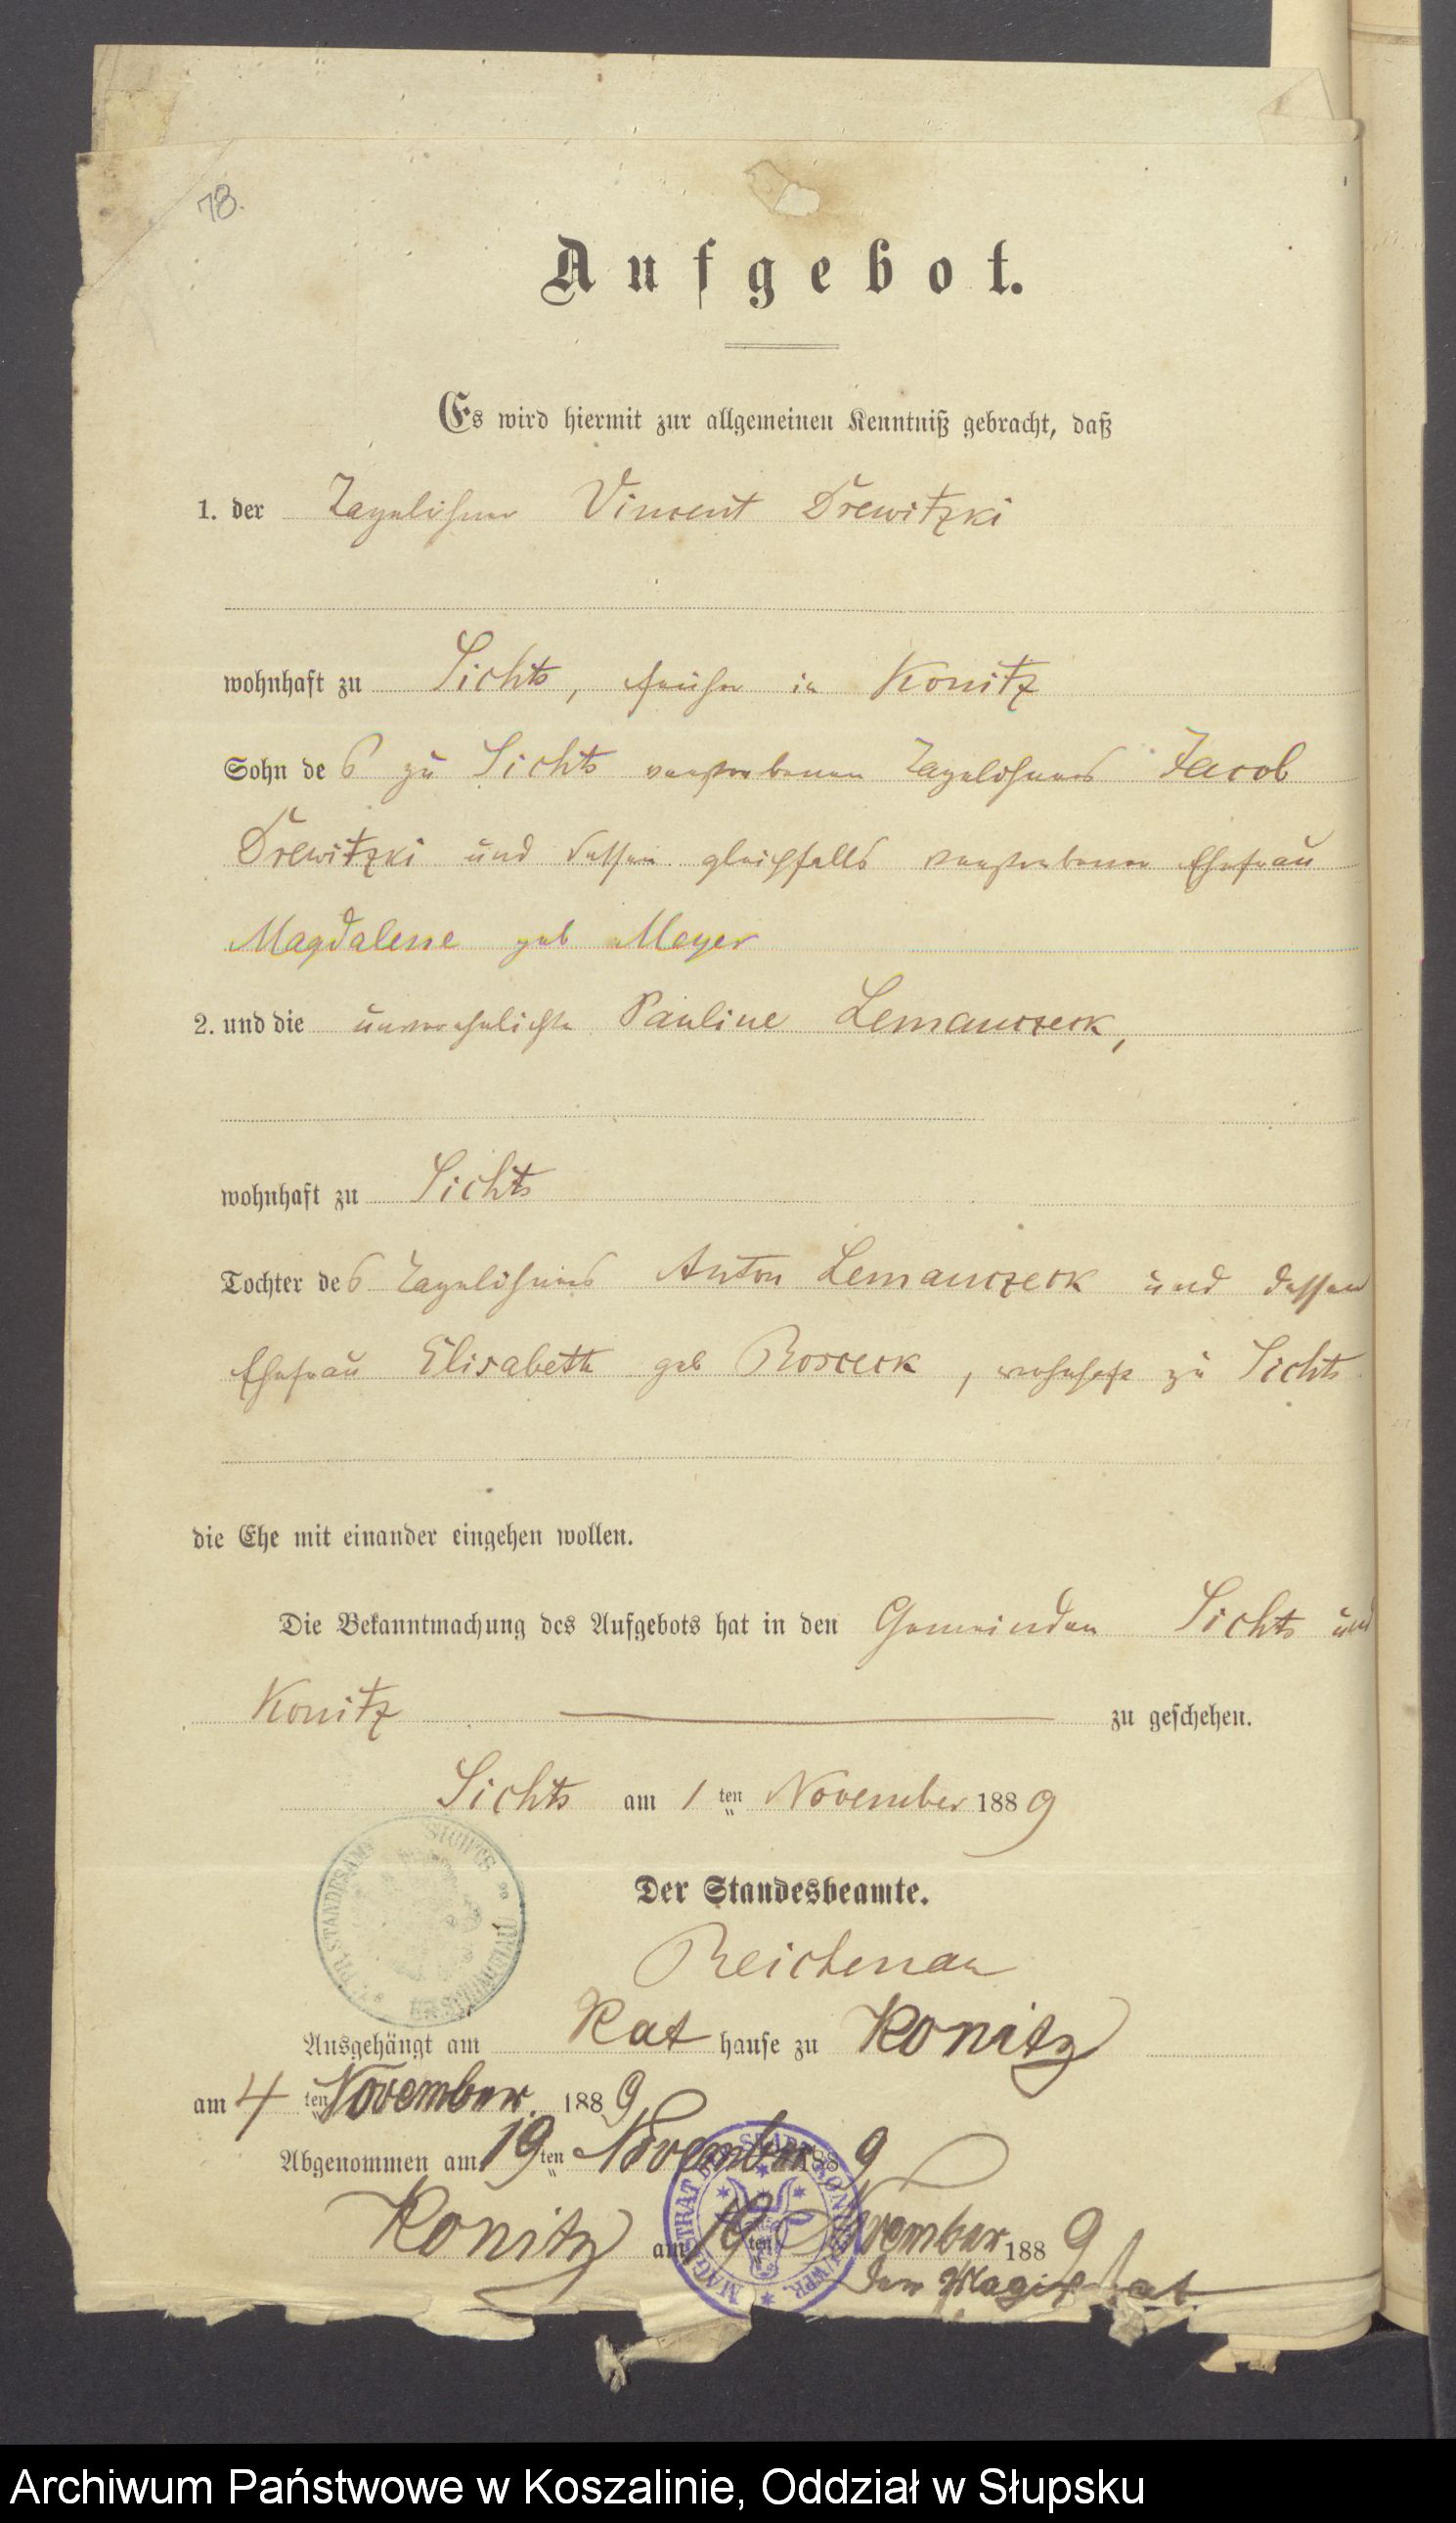 78.
Aufgebot.
Es wird hiermit zur allgemeinen Kenntniß gebracht, daß
1. der Tagelöhner Vincent Drewitzki
wohnhaft zu Lichts, früher in Konitz
Sohn des zu Lichts verstorbenen Tagelöhners Jacob
Drewitzki und dessen gleichfalls verstorbener Ehefrau
Magdalene geb Meyer
2. und die unverehelichte Pauline Lemanczeck,
wohnhaft zu Sichts
Tochter des Tagelöhners Anton Lemanczeck und dessen
Ehefrau Elisabeth geb , wohnhaft zu Sichts
die Ehe mit einander eingehen wollen.
Die Bekanntmachung des Aufgebots hat in den Gemeinden Sichts und
Konitz zu geschehen.
Sichts am 1ten November 1889
Der Standesbeamte.
Reichenau
K. PR. STANDESAMT SICHTS
Ausgehängt am Rathause zu Konitz
am 4ten November 1889
Abgenommen am 19ten November 1889
Konitz am 19ten November 1889
Der Magistrat
MAGISTRAT DER STADT KONITZ W/PR.
Archiwum Państwowe w Koszalinie, Oddział w Słupsku